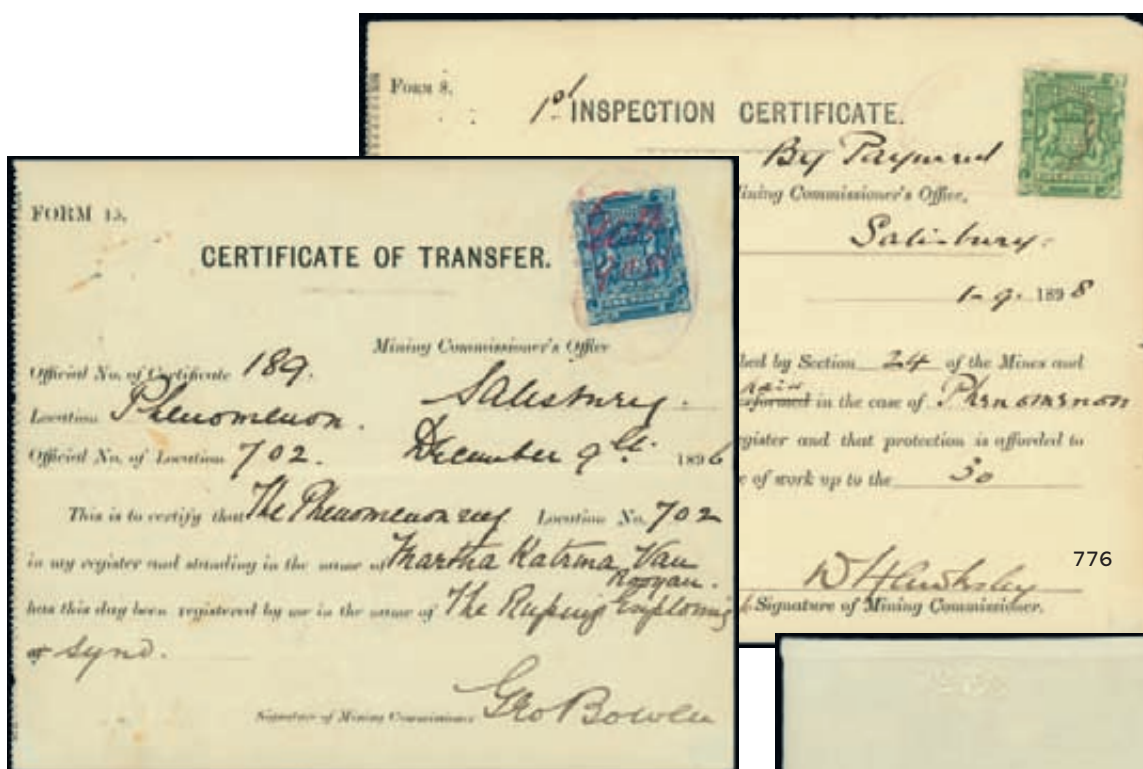 FORM 8.
1st INSPECTION CERTIFICATE.
By Payment
Mining Commissioner's Office,
Salisbury.
1-9. 1898
by Section 24 of the Mines and
in the case of Phenomenon
register and that protection is afforded to
of work up to the 30
Signature of Mining Commissioner.
776
FORM 15.
CERTIFICATE OF TRANSFER.
Mining Commissioner's Office
Official No. of Certificate 189.
Salisbury.
Location Phenomenon.
Official No. of Location 702.
December 9th 1896
This is to certify that The Phenomenon reef Location No. 702
in my register and standing in the name of Martha Katrina Van
Rooyan.
has this day been registered by me in the name of The
Synd.
Signature of Mining Commissioner Geo Bowen